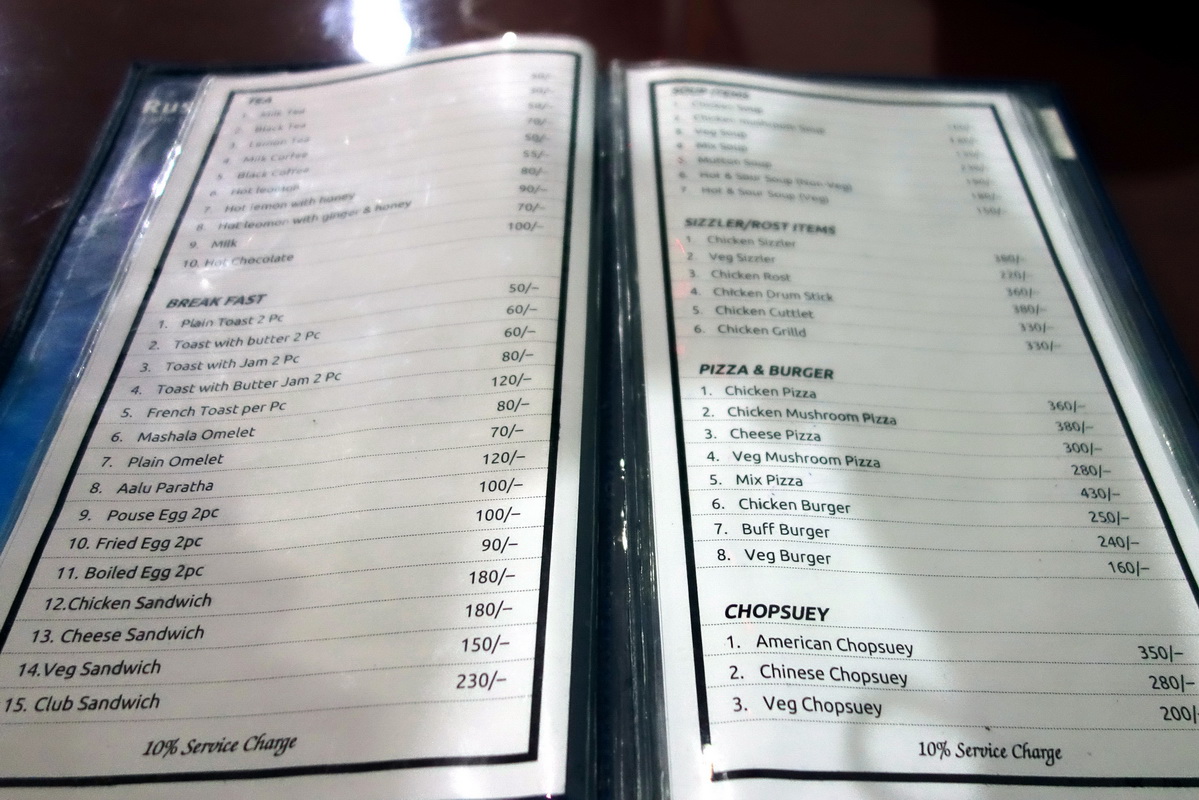 Rus
TEA
1. Milk Tea
2. Black Tea
3. Lemon Tea 50/-
4. Milk Coffee 70/-
5. Black Coffee 50/-
6. Hot leomon 55/-
7. Hot lemon with honey 80/-
8. Hot leomon with ginger & honey 90/-
9. Milk 70/-
10. Hot Chocolate 100/-
BREAK FAST
1. Plain Toast 2 Pc 50/-
2. Toast with butter 2 Pc 60/-
3. Toast with Jam 2 Pc 60/-
4. Toast with Butter Jam 2 Pc 80/-
5. French Toast per Pc 120/-
6. Mashala Omelet 80/-
7. Plain Omelet 70/-
8. Aalu Paratha 120/-
9. Pouse Egg 2pc 100/-
10. Fried Egg 2pc 100/-
11. Boiled Egg 2pc 90/-
12.Chicken Sandwich 180/-
13. Cheese Sandwich 180/-
14.Veg Sandwich 150/-
15. Club Sandwich 230/-
10% Service Charge
SOUP ITEMS
1. Chicken Soup
2. Chicken mushroom Soup
3. Veg Soup
4. Mix Soup
5. Mutton Soup
6. Hot & Sour Soup (Non-Veg) 180/-
7. Hot & Sour Soup (Veg) 150/-
SIZZLER/ROST ITEMS
1. Chicken Sizzler 380/-
2. Veg Sizzler 220/-
3. Chicken Rost 360/-
4. Chicken Drum Stick 380/-
5. Chicken Cuttlet 330/-
6. Chicken Grilld 330/-
PIZZA & BURGER
1. Chicken Pizza 360/-
2. Chicken Mushroom Pizza 380/-
3. Cheese Pizza 300/-
4. Veg Mushroom Pizza 280/-
5. Mix Pizza 430/-
6. Chicken Burger 250/-
7. Buff Burger 240/-
8. Veg Burger 160/-
CHOPSUEY
1. American Chopsuey 350/-
2. Chinese Chopsuey 280/-
3. Veg Chopsuey 200/
10% Service Charge